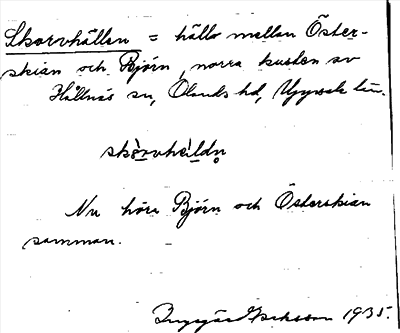 Skorvhällen = hälla mellan Öster-
skian och Björn, norra kusten av
Hållnäs sn, Ölands hd, Uppsala län.
skòrvhèldn̥
Nu höra Björn och Österskian
samman.
Ingegärd 1935.